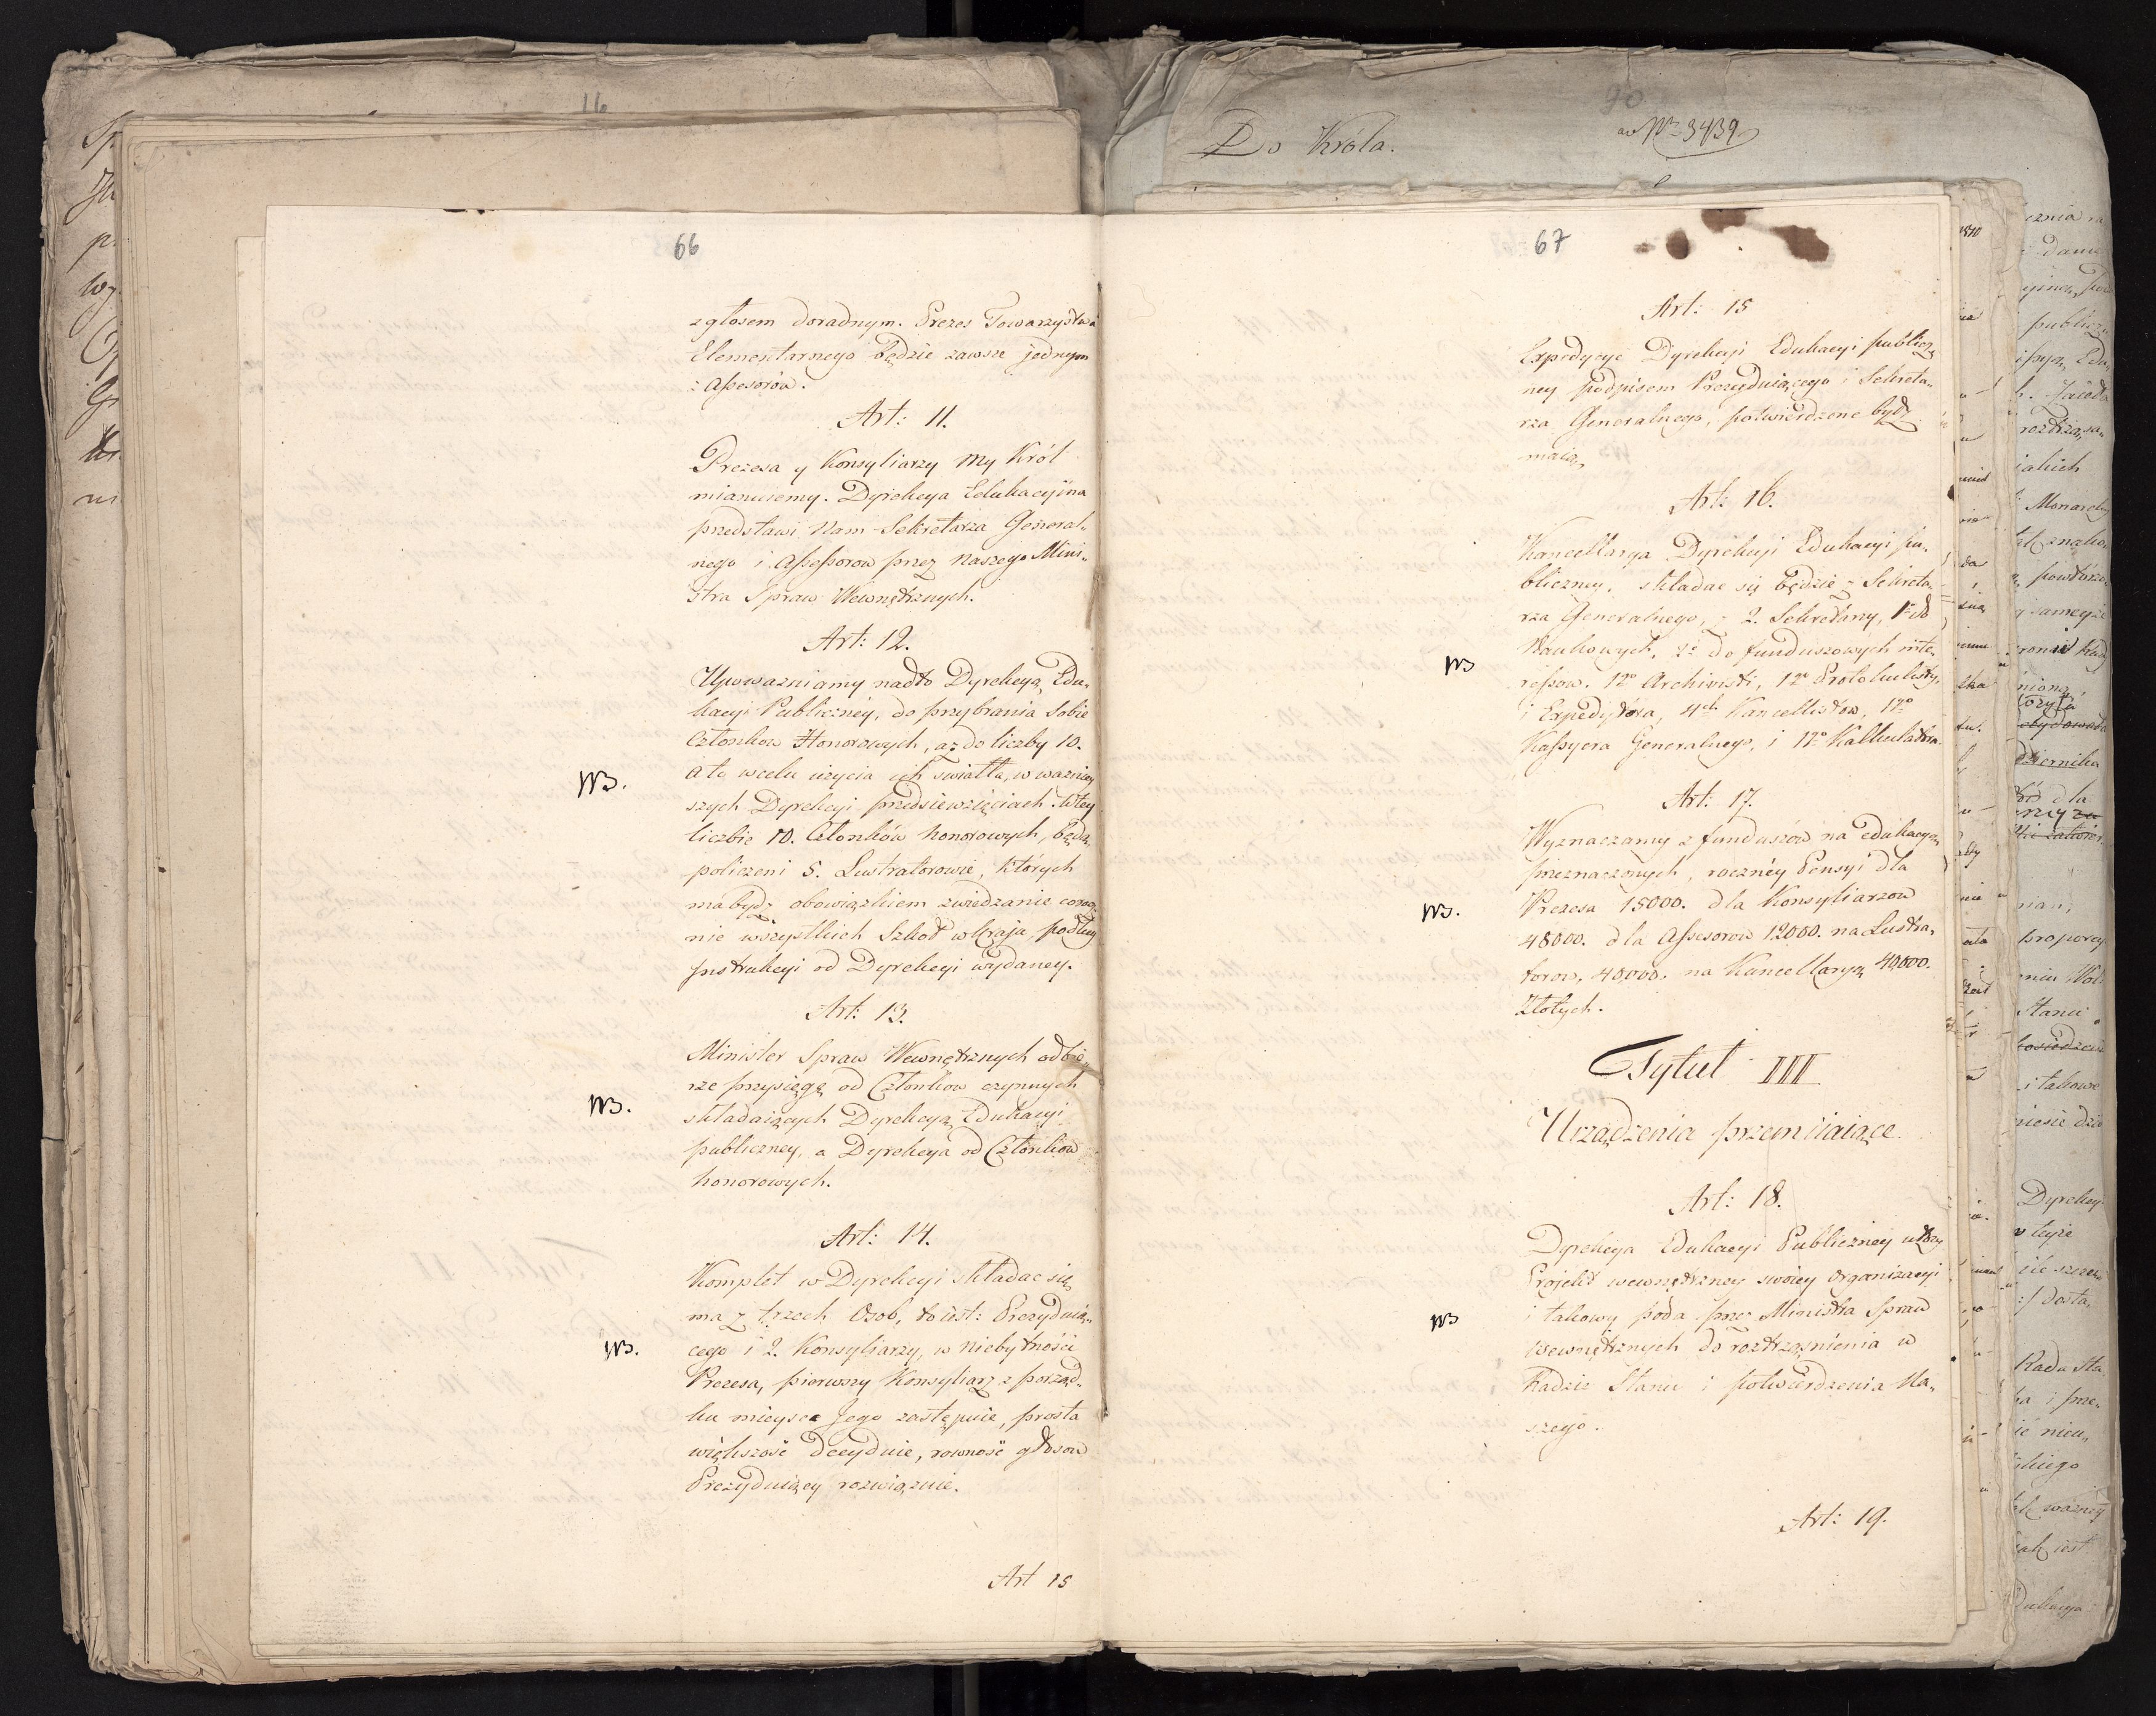 16
Do Króla.
90
ad Nr 3439
66
z głosem doradnym. Prezes Towarzystwa
Elementarnego będzie zawsze jednym
z Assesorów.
Art: 11.
Prezesa y Konsyliarzy My Król
mianuiemy. Dyrekcya Edukacyina
przedstawi Nam Sekretarza General-
nego i Assessorow przez Naszego Mini-
stra Spraw Wewnętrznych.
Art: 12.
Upowazniamy nadto Dyrekcyą Edu-
kacyi Publiczney, do przybrania sobie
Członkow Honorowych, aż do liczby 10.
a to w celu użycia ich światła, w ważniey
NB.
szych Dyrekcyi przedsiewzięciach. W tey
liczbie 10. Członków honorowych, będą
policzeni 5. Lustratorowie, których
ma bydź obowiązkiem zwiedzanie corocz
nie wszystkich Szkoł w Kraju, podług
Instrukcyi od Dyrekcyi wydaney.
Art: 13.
Minister Spraw Wewnętrznych odbie
rze przysięgę od Członkow czynnych
NB.
składaiących Dyrekcyą Edukacyi
publiczney, a Dyrekcya od Członków
honorowych.
Art: 14.
Komplet w Dyrekcyi składac się
ma z trzech Osob, to iest: Prezyduią-
NB.
cego i 2. Konsyliarzy, w niebytności
Prezesa, pierwszy Konsyliarz z porząd-
ku mieysce Jego zastępuie, prosta
większość decyduie, rowność głosow
Prezyduiący rozwiązuie.
Art 15
67
Art: 15
Expedycye Dyrekcyi Edukacyi publicz
ney podpisem Prezyduiącego i Sekreta-
rza Generalnego, potwierdzone bydź
maią
Art: 16.
Kancellarya Dyrekcyi Edukacyi pu-
bliczney, składac się będzie z Sekreta
rza Generalnego, z 2. Sekretarzy, 1o do
NB
Naukowych, 2o do funduszowych inte-
ressow. 1go Archiwisti, 1go Protokulisty,
i Expedytora, 4ech Kancellistow, 1go
Kassyera Generalnego, i 1go Kalkulatora.
Art: 17.
Wyznaczamy z funduszow na edukacyą
przeznaczonych, roczney Pensyi dla
NB.
Prezesa 15000. dla Konsyliarzow
48000. dla Assesorow 12000. na Lustra-
torow. 40,000. na Kancellaryą 40,000.
Złotych.
Tytuł III
Urządzenia przemiiaiące.
Art: 18.
Dyrekcya Edukacyi Publiczney ułoży
Projekt wewnętrzney swoiey Organizacyi
NB
i takowy poda przez Ministra Spraw
Wewnętrznych do roztrząśnienia w
Radzie Stanu i potwierdzenia Na-
szego.
Art: 19.